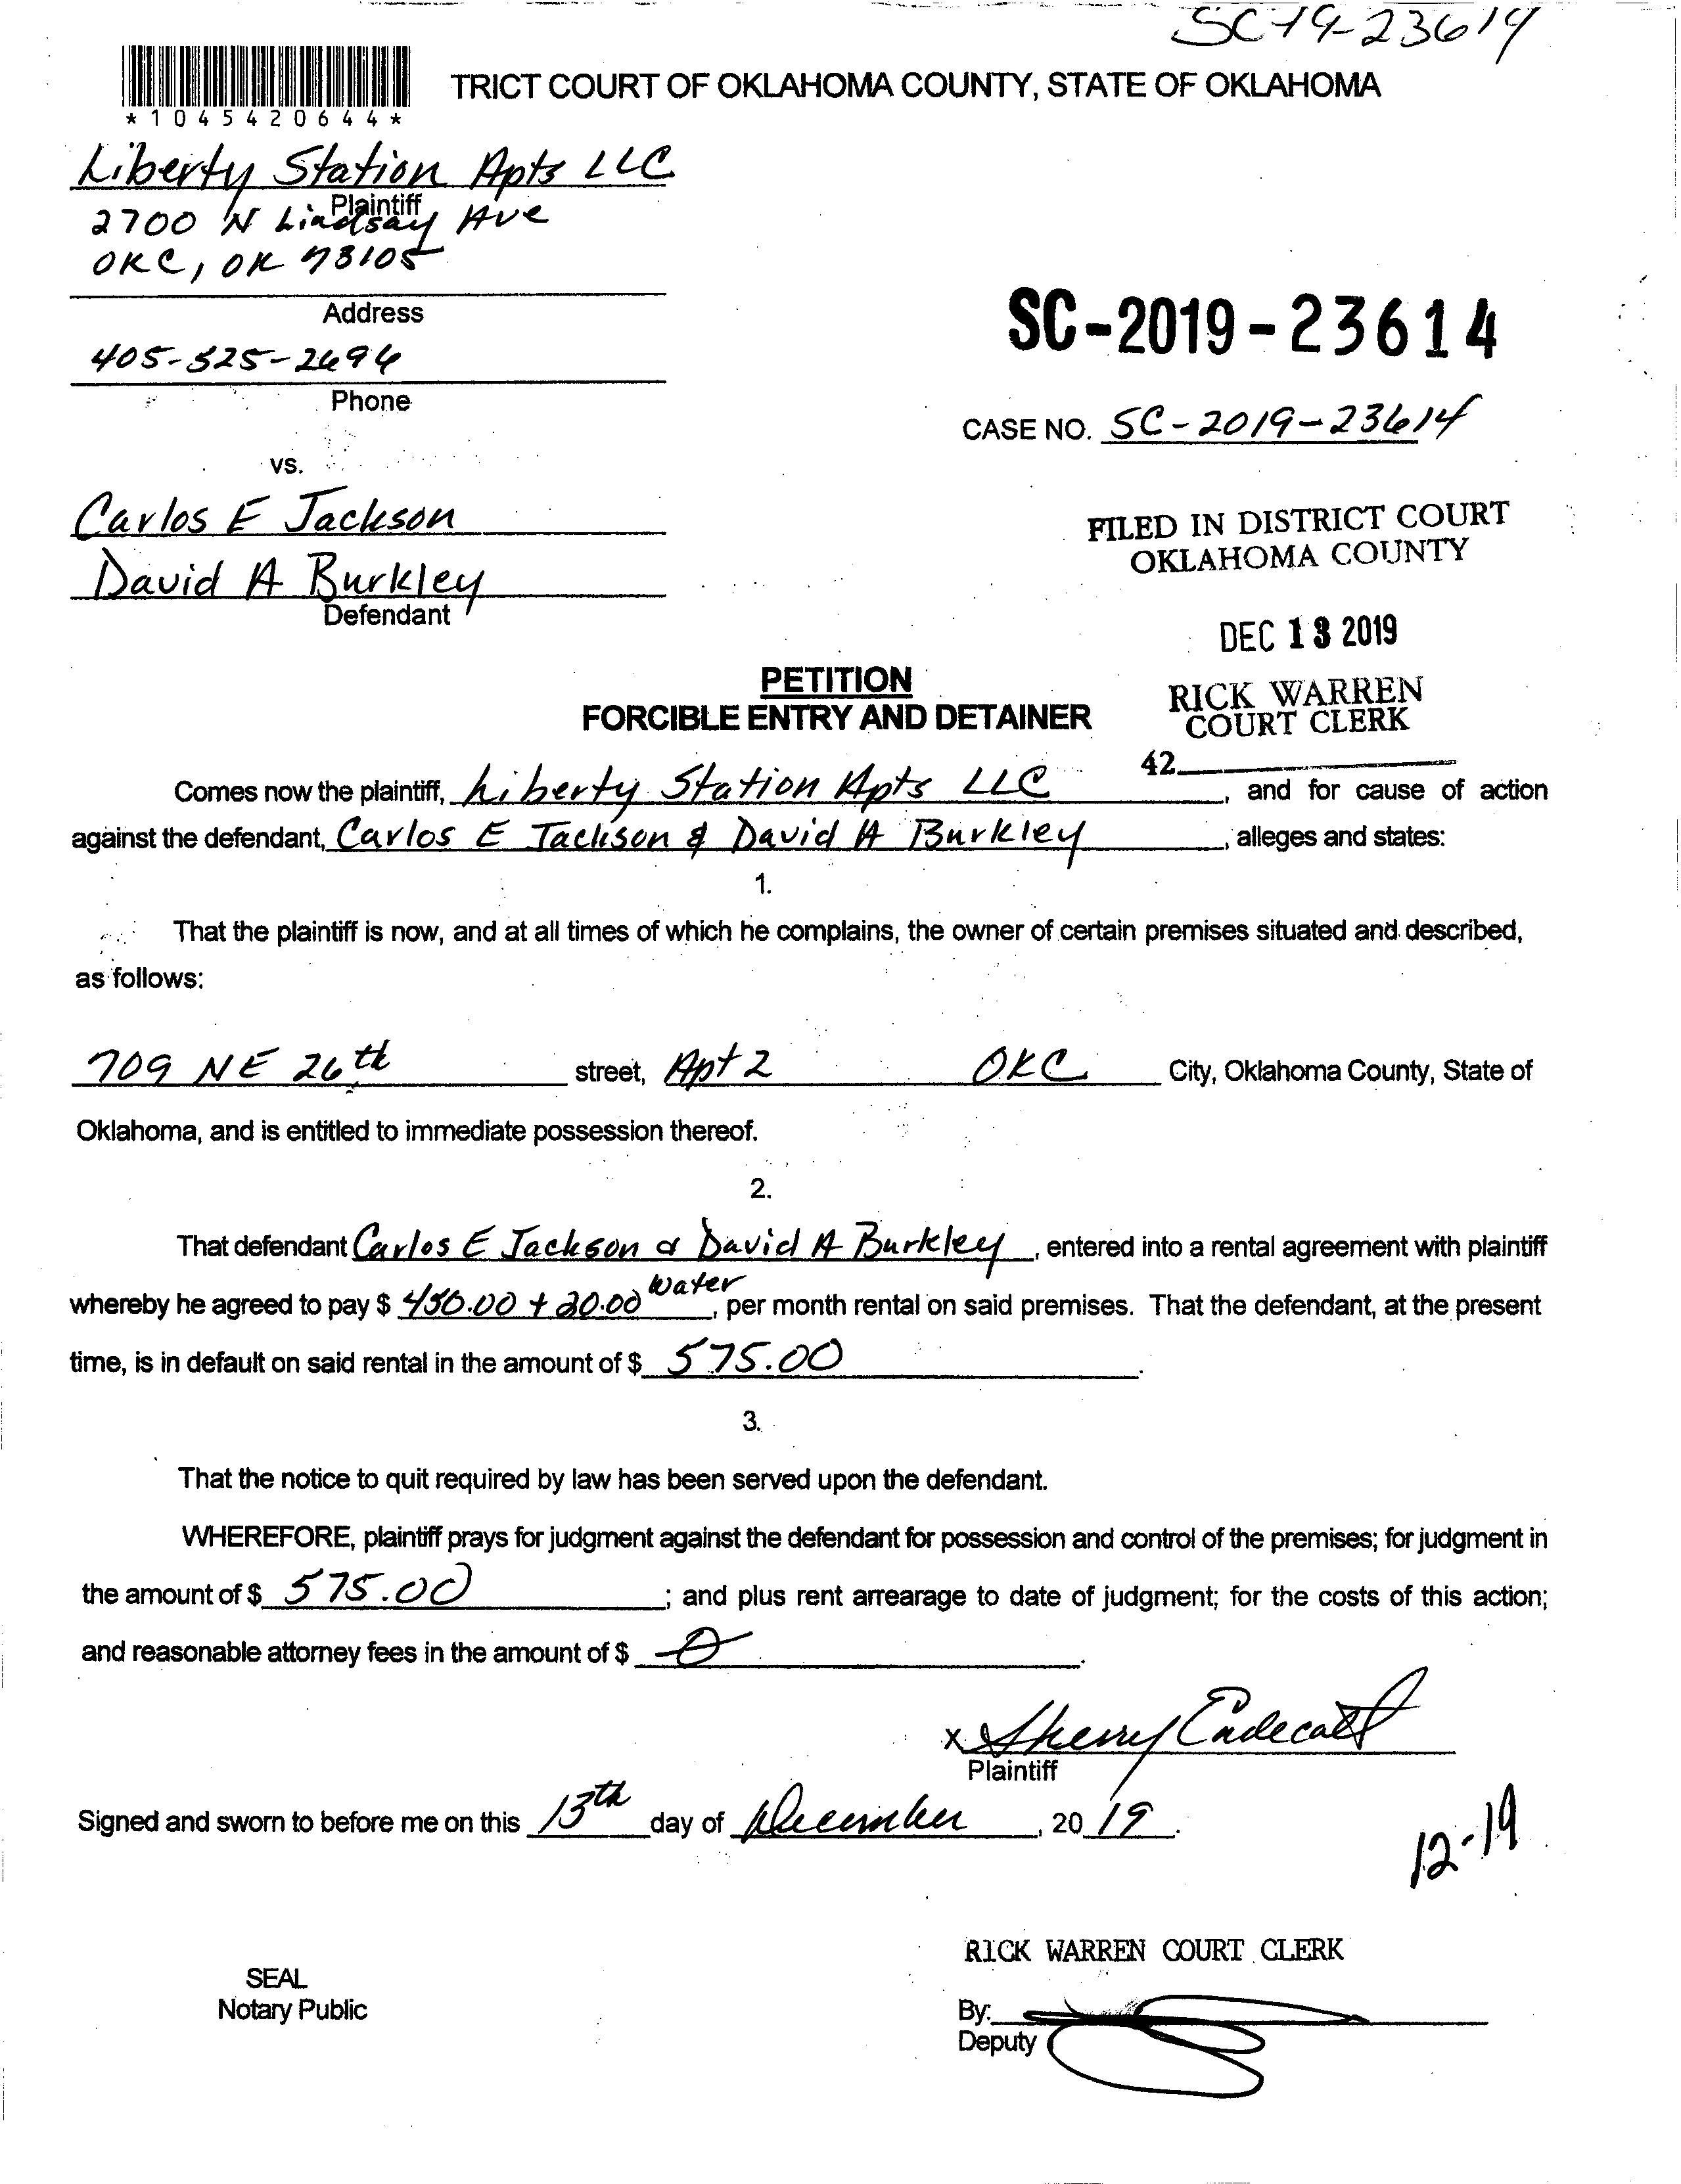 SC-19-23614
TRICT COURT OF OKLAHOMA COUNTY, STATE OF OKLAHOMA
*1045420644*
Liberty Station Apts LLC
Plaintiff
2700 N Lindsay Ave
OKC, OK 73105
Address
SC-2019-23614
405-525-2696
Phone
CASE NO. SC-2019-23614
vs.
Carlos E Jackson
FILED IN DISTRICT COURT
OKLAHOMA COUNTY
David A Burkley
Defendant
DEC 13 2019
PETITION
RICK WARREN
FORCIBLE ENTRY AND DETAINER
COURT CLERK
42
Comes now the plaintiff, Liberty Station Apts LLC, and for cause of action
against the defendant, Carlos E Jackson & David A Burkley, alleges and states:
1.
That the plaintiff is now, and at all times of which he complains, the owner of certain premises situated and described,
as follows:
709 NE 26th street, Apt 2 OKC City, Oklahoma County, State of
Oklahoma, and is entitled to immediate possession thereof.
2.
That defendant Carlos E Jackson & David A Burkley, entered into a rental agreement with plaintiff
whereby he agreed to pay $ 450.00 + 20.00 water, per month rental on said premises. That the defendant, at the present
time, is in default on said rental in the amount of $ 575.00.
3.
That the notice to quit required by law has been served upon the defendant.
WHEREFORE, plaintiff prays for judgment against the defendant for possession and control of the premises; for judgment in
the amount of $ 575.00; and plus rent arrearage to date of judgment; for the costs of this action;
and reasonable attorney fees in the amount of $ 0.
x Sherry Endecott
Plaintiff
Signed and sworn to before me on this 13th day of December, 20 19.
12-19
RICK WARREN COURT CLERK
SEAL
Notary Public
By:
Deputy